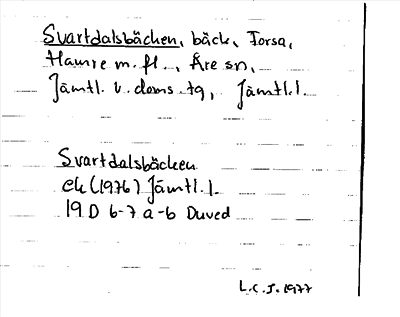 Svartdalsbäcken, bäck, Torsa,
Hamre m. fl., Åre sn,
Jämtl. v. doms. tg, Jämtl. l.
Svartdalsbäcken
ek (1976) Jämtl. l.
19 D 6-7 a-b Duved
L.C.J. 1977